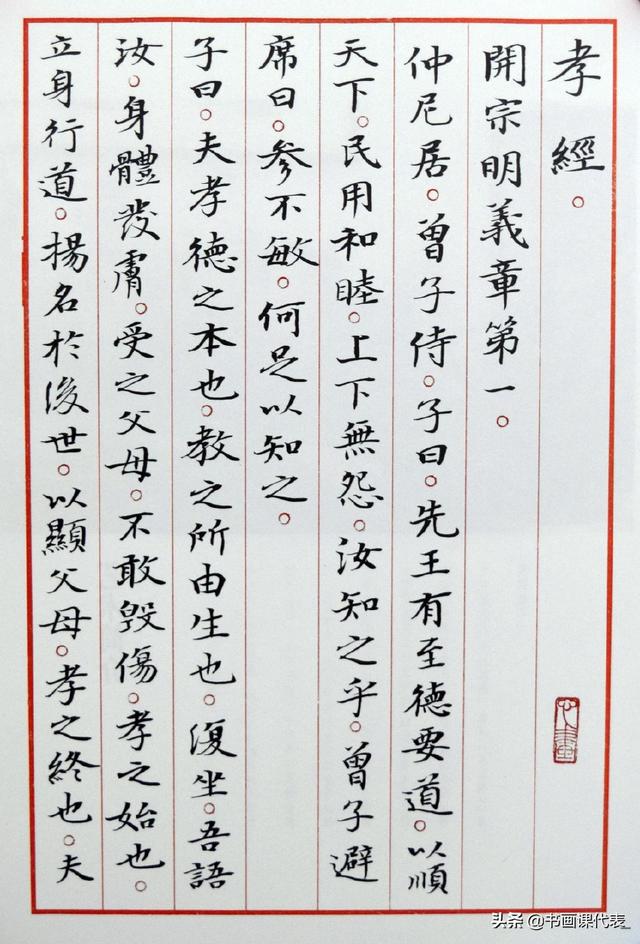 孝經。
開宗明義章第一。
仲尼居。曾子侍。子曰。先王有至德要道。以順
天下。民用和睦。上下無怨。汝知之乎。曾子避
席曰。參不敏。何足以知之。
子曰。夫孝德之本也。教之所由生也。復坐。吾語
汝。身體髮膚。受之父母。不敢毀傷。孝之始也。
立身行道。揚名於後世。以顯父母。孝之終也。夫
头条 @书画课代表